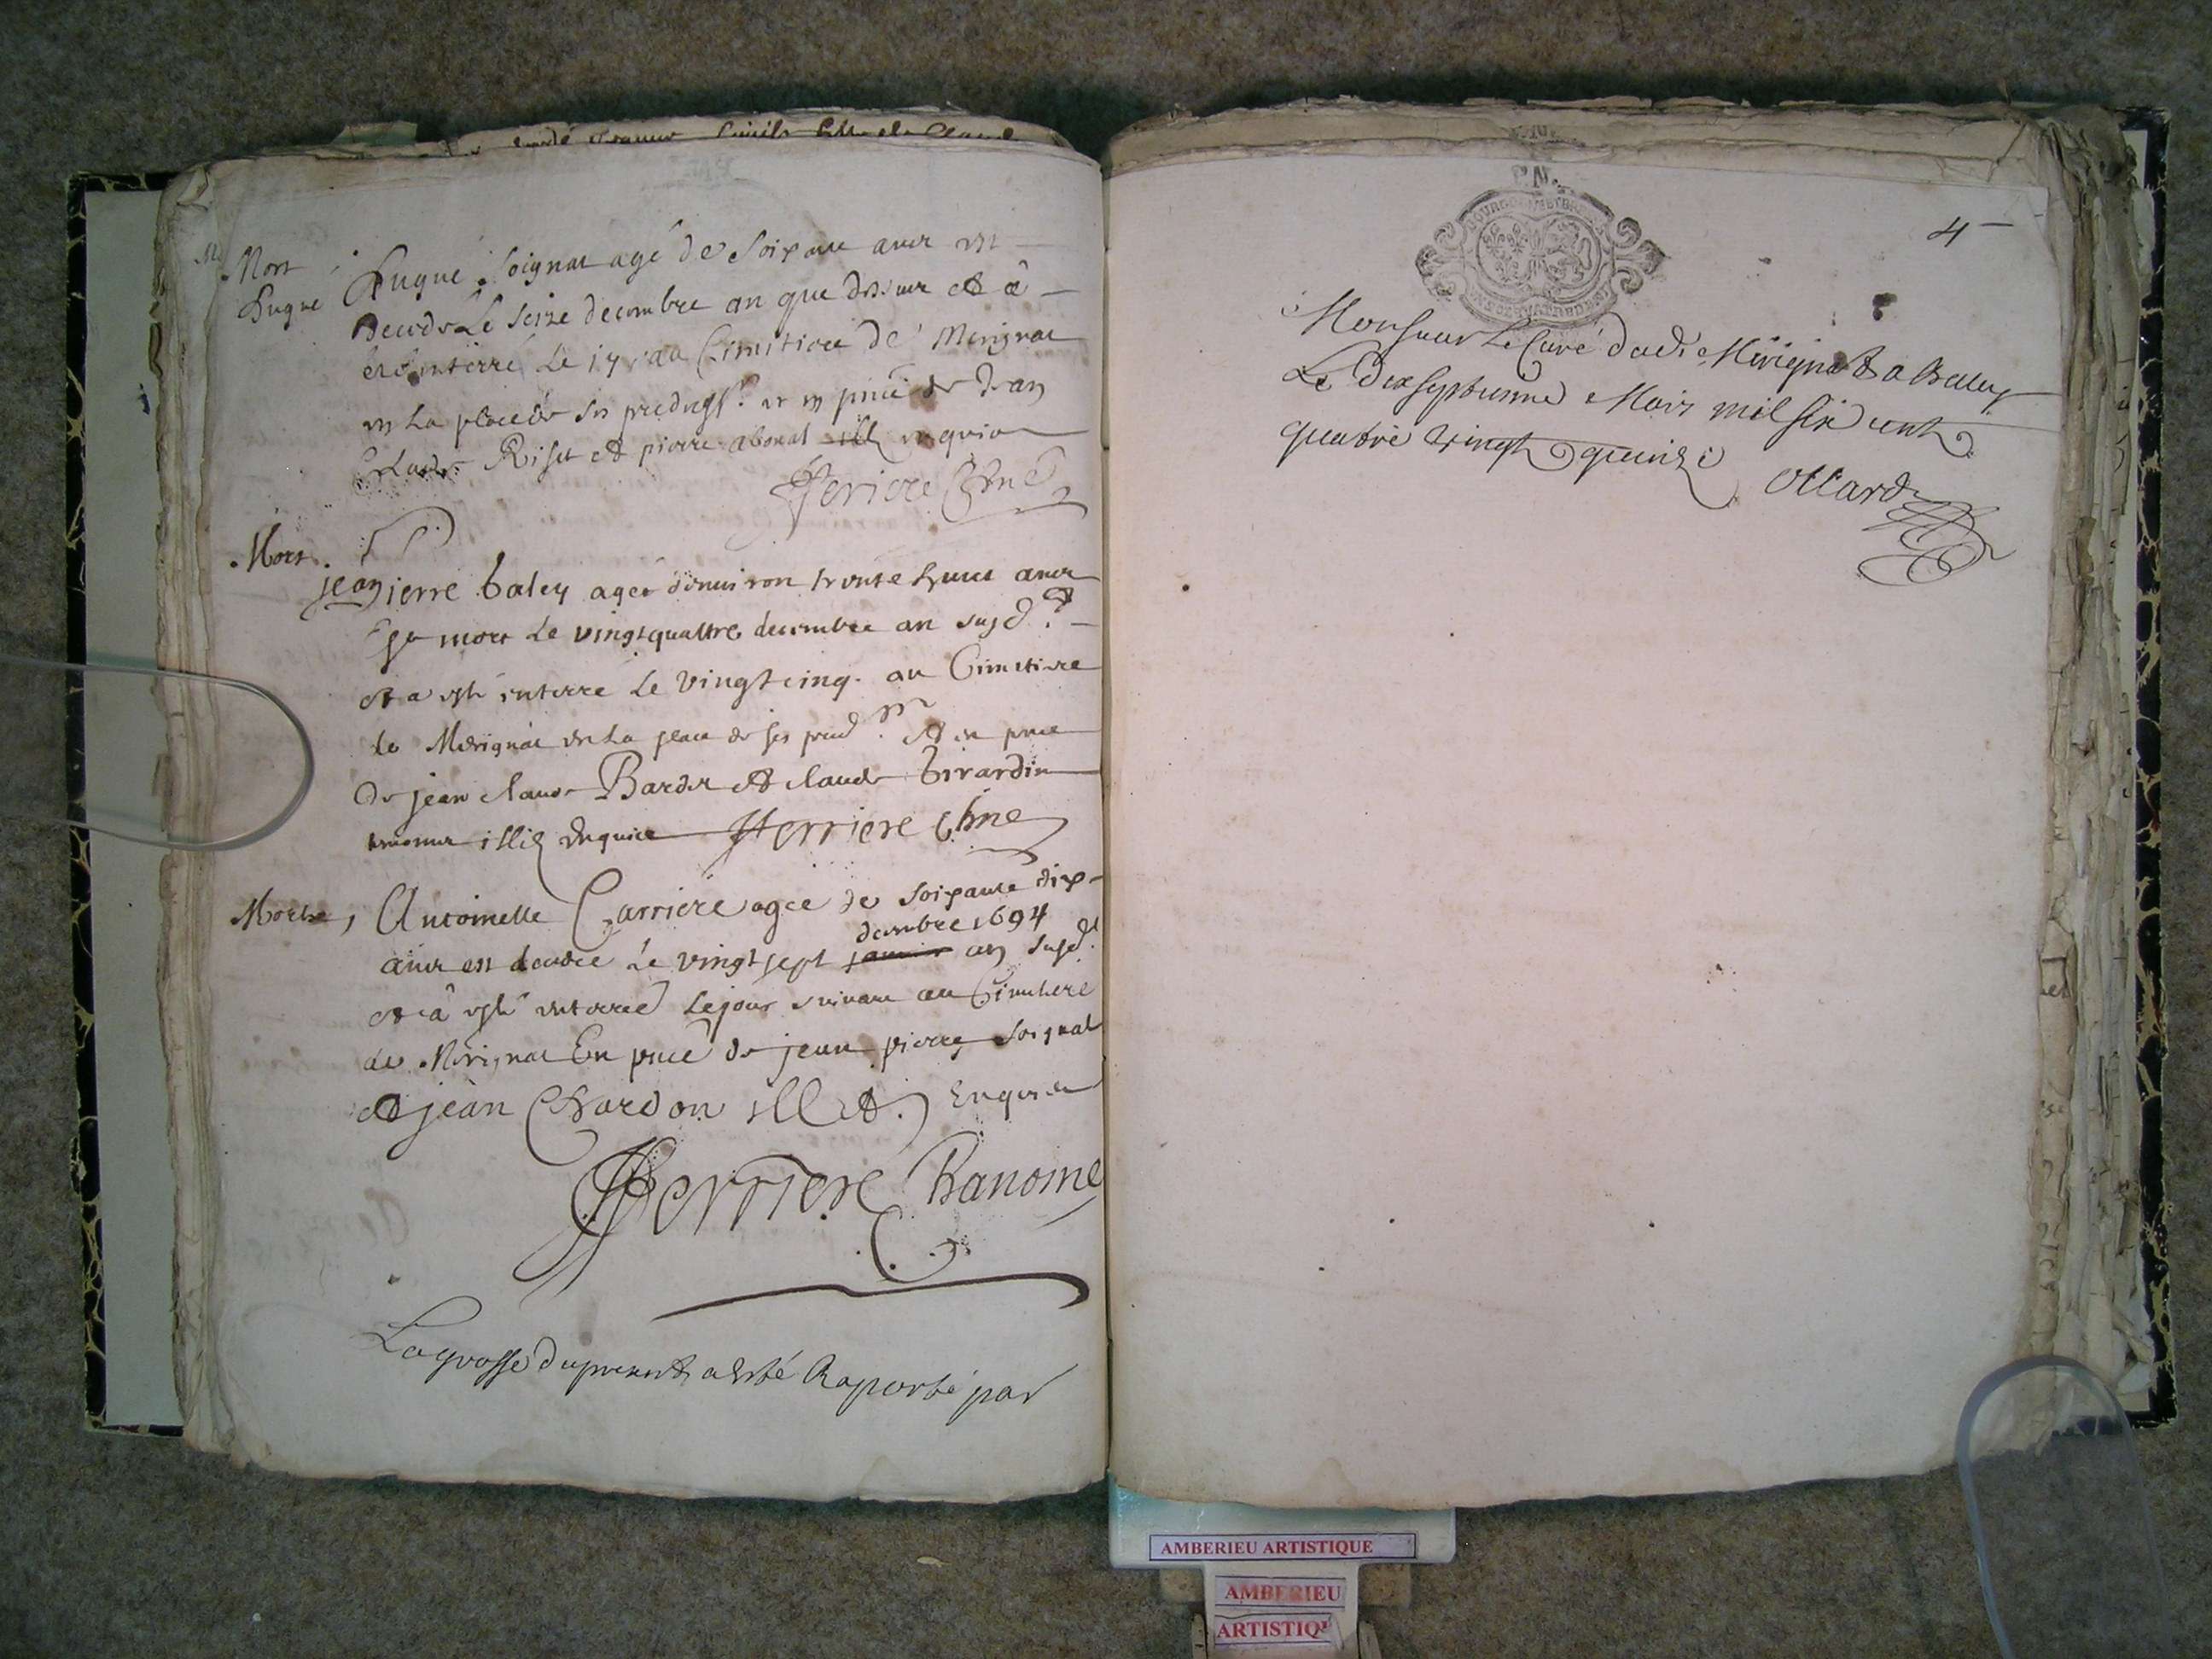 Mort Hugue Soignat agé de Soixante ans est
Hugue decedé Le seize decembre an que dessus et a
esté enterré Le 17 au Cimitiere de Merignat
en La place de ses predess.rs et en pñce de Jean
Claude Riset et pierre abonat ill enquis
fferriere Chne
Mort.
jean pierre baley agé denuiron trente huit ans
est mort Le vingtquattre decembre an susd.t
et a esté enterré Le vingtcinq. au Cimitiere
de Merignat en La place de ses pred.rs et en pñce
de jean claude Bardet et claude Girardin
temoins illit enquis fferriere Chne
Morte, Antoinette Carriere agée de soixante dix
decembre 1694
ans est decedée Le vingtsept janvier an susd.t
et a esté enterrée Le jour suivant au Cimitiere
de Merignat En pñce de jean pierre Soignat
et jean Chardon illet. Enquis
fferriere Chanoine
La grosse du present a esté Raporté par
P.N.
4
Monsieur Le Curé dud. Mérignat a Belley
Le dixseptieme Mars mil six cent
quatre vingt quinze Ollard
AMBERIEU ARTISTIQUE
AMBERIEU
ARTISTIQ